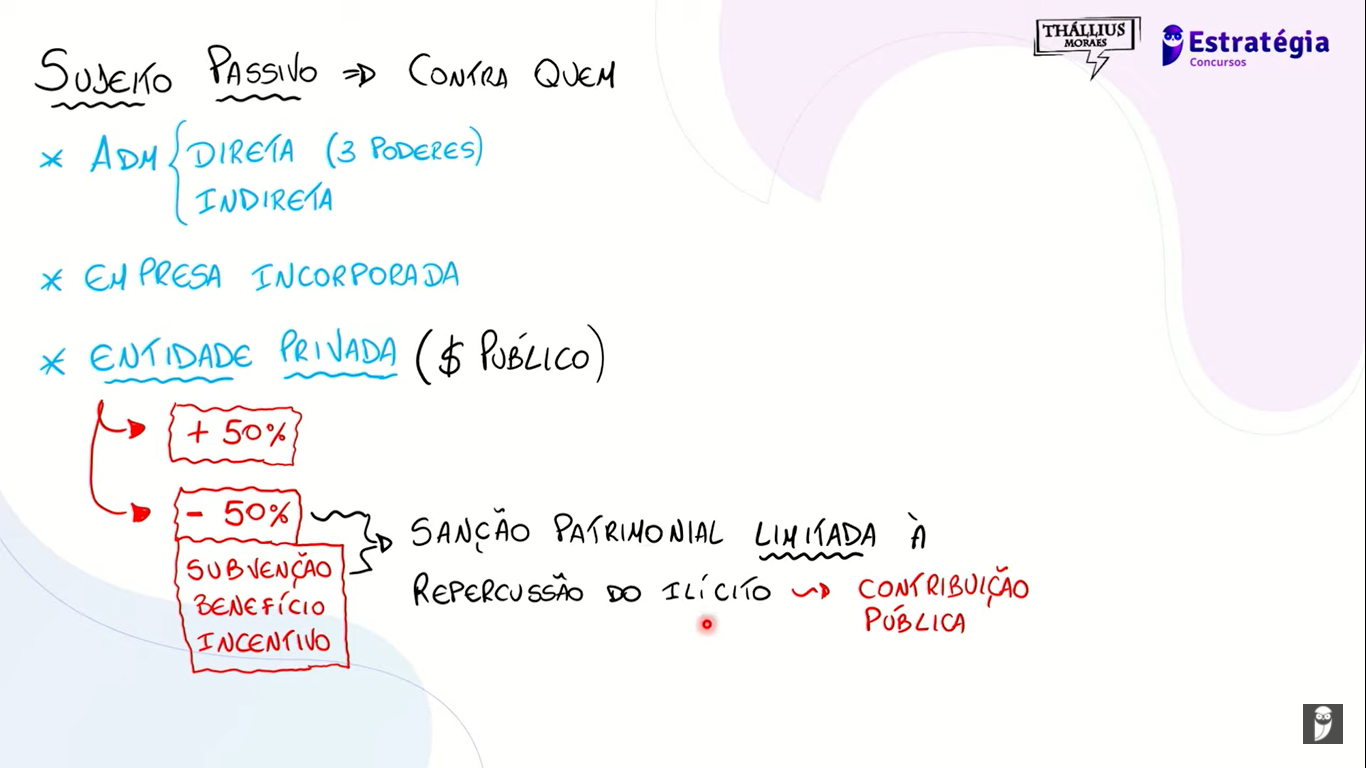 THÁLLIUS
MORAES
Estratégia
Concursos
SUJEITO PASSIVO ⇒ CONTRA QUEM
* ADM { DIRETA (3 PODERES)
INDIRETA
* EMPRESA INCORPORADA
* ENTIDADE PRIVADA ($ PÚBLICO)
+ 50%
- 50%
SUBVENÇÃO
BENEFÍCIO
INCENTIVO
SANÇÃO PATRIMONIAL LIMITADA À
REPERCUSSÃO DO ILÍCITO → CONTRIBUIÇÃO
PÚBLICA